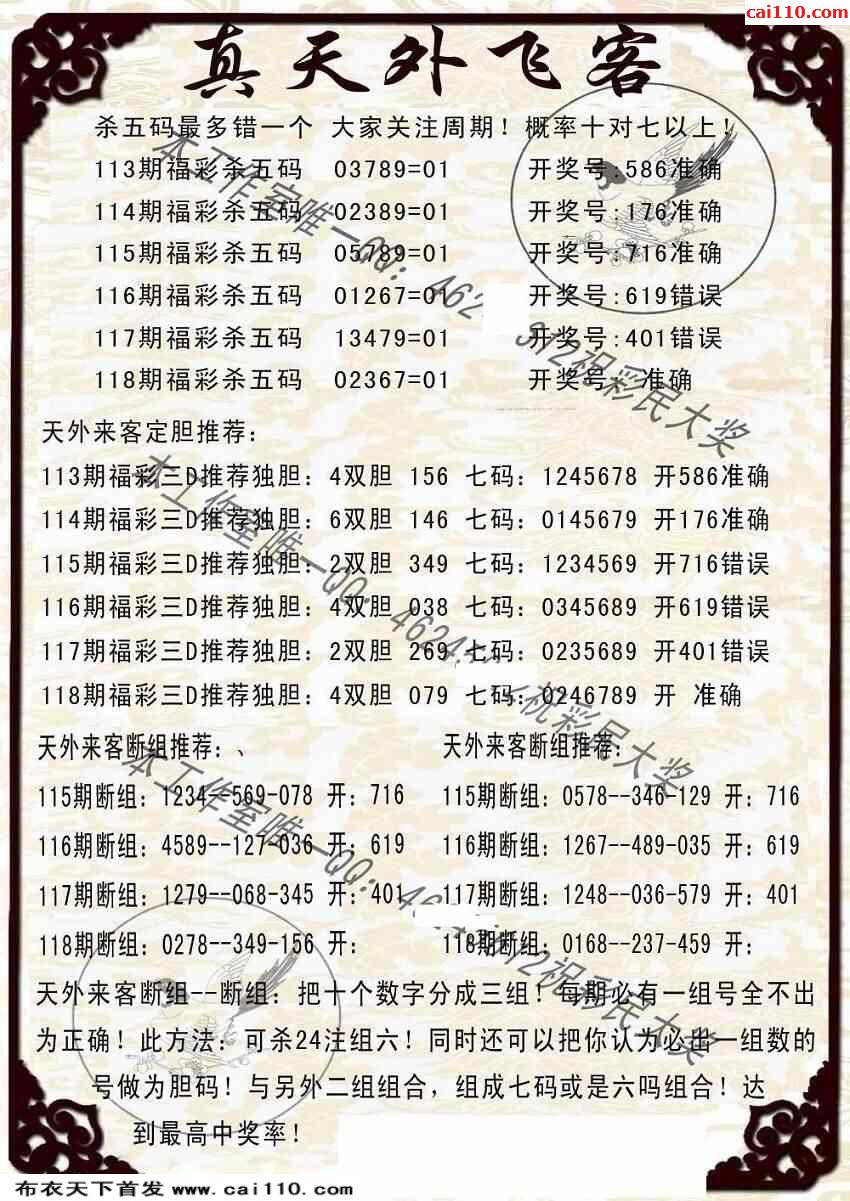 cai110.com
真天外飞客
杀五码最多错一个 大家关注周期！概率十对七以上！
113期福彩杀五码 03789=01 开奖号:586准确
114期福彩杀五码 02389=01 开奖号:176准确
115期福彩杀五码 05789=01 开奖号:716准确
116期福彩杀五码 01267=01 开奖号:619错误
117期福彩杀五码 13479=01 开奖号:401错误
118期福彩杀五码 02367=01 开奖号: 准确
天外来客定胆推荐：
113期福彩三D推荐独胆：4双胆 156 七码：1245678 开586准确
114期福彩三D推荐独胆：6双胆 146 七码：0145679 开176准确
115期福彩三D推荐独胆：2双胆 349 七码：1234569 开716错误
116期福彩三D推荐独胆：4双胆 038 七码：0345689 开619错误
117期福彩三D推荐独胆：2双胆 269 七码：0235689 开401错误
118期福彩三D推荐独胆：4双胆 079 七码：0246789 开 准确
天外来客断组推荐：、 天外来客断组推荐：
115期断组：1234--569-078 开：716 115期断组：0578--346-129 开：716
116期断组：4589--127-036 开：619 116期断组：1267--489-035 开：619
117期断组：1279--068-345 开：401 117期断组：1248--036-579 开：401
118期断组：0278--349-156 开： 118期断组：0168--237-459 开：
天外来客断组--断组：把十个数字分成三组！每期必有一组号全不出
为正确！此方法：可杀24注组六！同时还可以把你认为必出一组数的
号做为胆码！与另外二组组合，组成七码或是六吗组合！达
到最高中奖率！
本工作室唯一QQ：462 312祝彩民大奖
本工作室唯一QQ：4624 2祝彩民大奖
本工作室唯一QQ：46 312祝彩民大奖
布衣天下首发 www.cai110.com